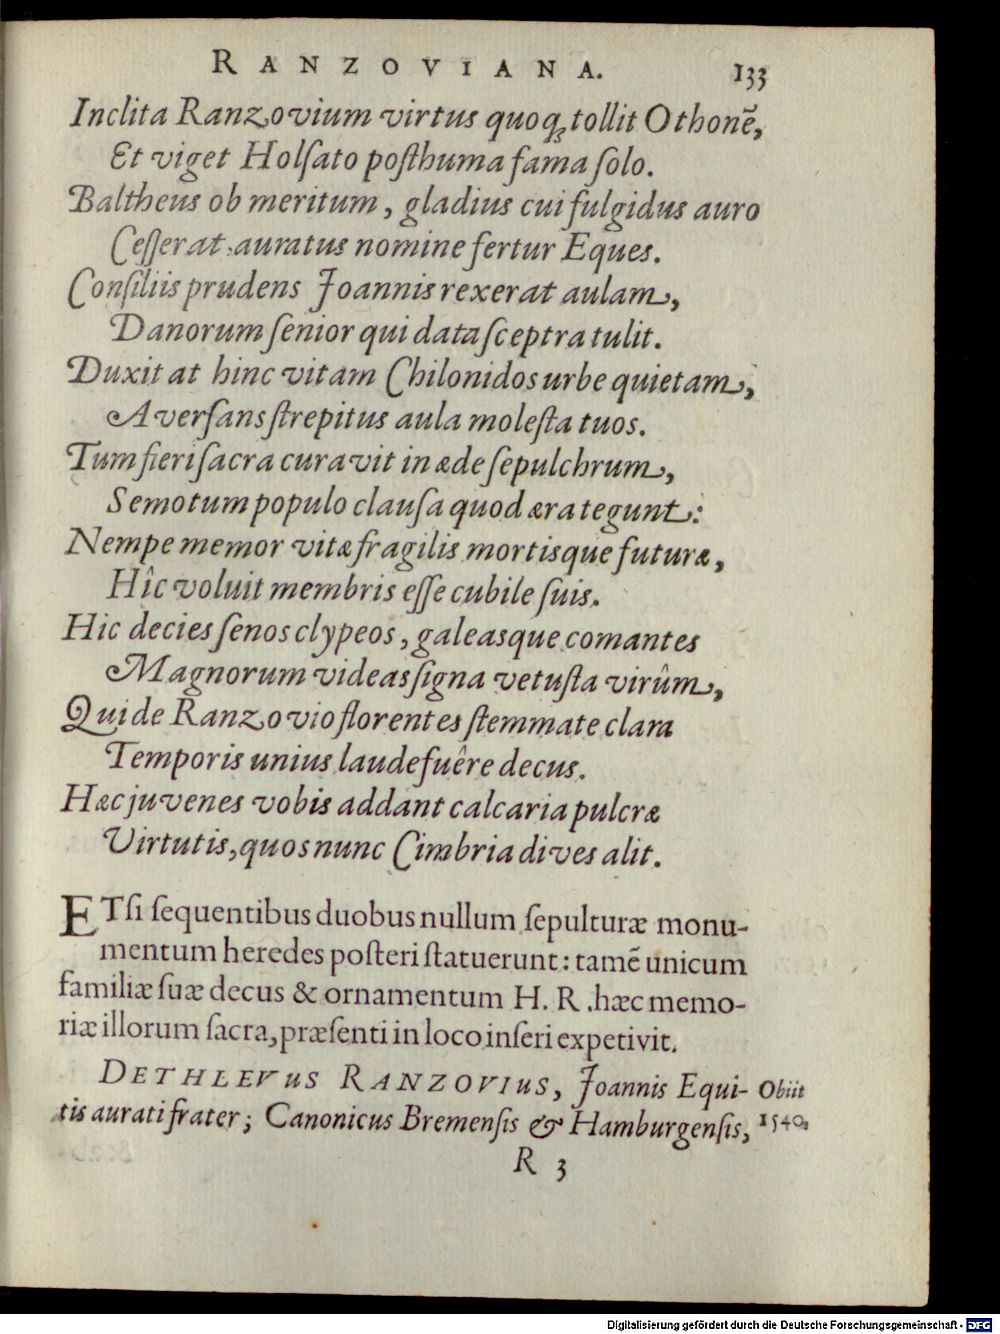 RANZOVIANA. 133
Inclita Ranzovium virtus quoqꝫ tollit Othonē,
Et viget Holſato poſthuma fama ſolo.
Baltheus ob meritum, gladius cui fulgidus auro
Ceſſerat, auratus nomine fertur Eques.
Conſiliis prudens Joannis rexerat aulam,
Danorum ſenior qui data ſceptra tulit.
Duxit at hinc vitam Chilonidos urbe quietam,
Averſans ſtrepitus aula moleſta tuos.
Tum fieri ſacra curavit in æde ſepulchrum,
Semotum populo clauſa quod æra tegunt:
Nempe memor vitæ fragilis mortisque futuræ,
Hîc voluit membris eſſe cubile ſuis.
Hic decies ſenos clypeos, galeasque comantes
Magnorum videas ſigna vetuſta virûm,
Qui de Ranzovio florentes ſtemmate clara
Temporis unius laude fuêre decus.
Hæc juvenes vobis addant calcaria pulcræ
Virtutis, quos nunc Cimbria dives alit.
ETſi ſequentibus duobus nullum ſepulturæ monu-
mentum heredes poſteri ſtatuerunt: tamē unicum
familiæ ſuæ decus & ornamentum H. R. hæc memo-
riæ illorum ſacra, præſenti in loco inſeri expetivit.
DETHLEVUS RANZOVIUS, Joannis Equi- Obiit
tis aurati frater; Canonicus Bremenſis & Hamburgenſis, 1540,
R 3
Digitalisierung gefördert durch die Deutsche Forschungsgemeinschaft - DFG